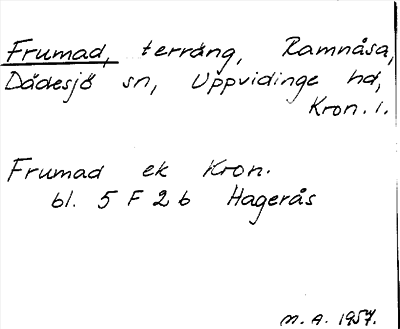 Frumad, terräng, Ramnåsa,
Dädesjö sn, Uppvidinge hd,
Kron. l.
Frumad ek Kron.
bl. 5 F 2 b Hagerås
M. A. 1957.